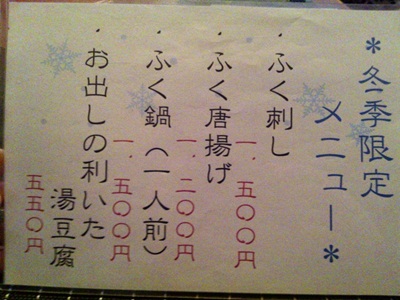 ＊冬季限定
メニュー＊
・ふく刺し
一、五〇〇円
・ふく唐揚げ
一、二〇〇円
・ふく鍋（一人前）
一、五〇〇円
・お出しの利いた
湯豆腐
五五〇円